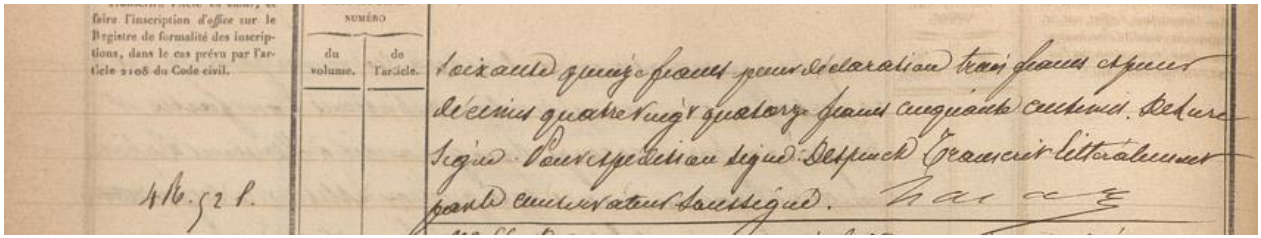 faire l'inscription d'office sur le
Registre de formalité des inscrip-
tions, dans le cas prévu par l'ar-
ticle 2108 du Code civil.
NUMÉRO
du volume.
de l'article.
soixante quinze francs pour déclaration trois francs et pour
décimes quatre vingt quatorze francs cinquante centimes.
Signé. Pour expédition signé: Transcrit littéralement
par le conservateur soussigné.
4 R. 52 S.